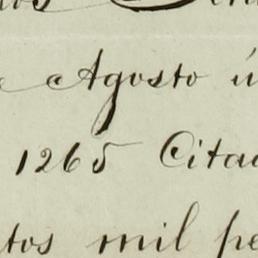 Agosto
1265 Cita
tos mil pe